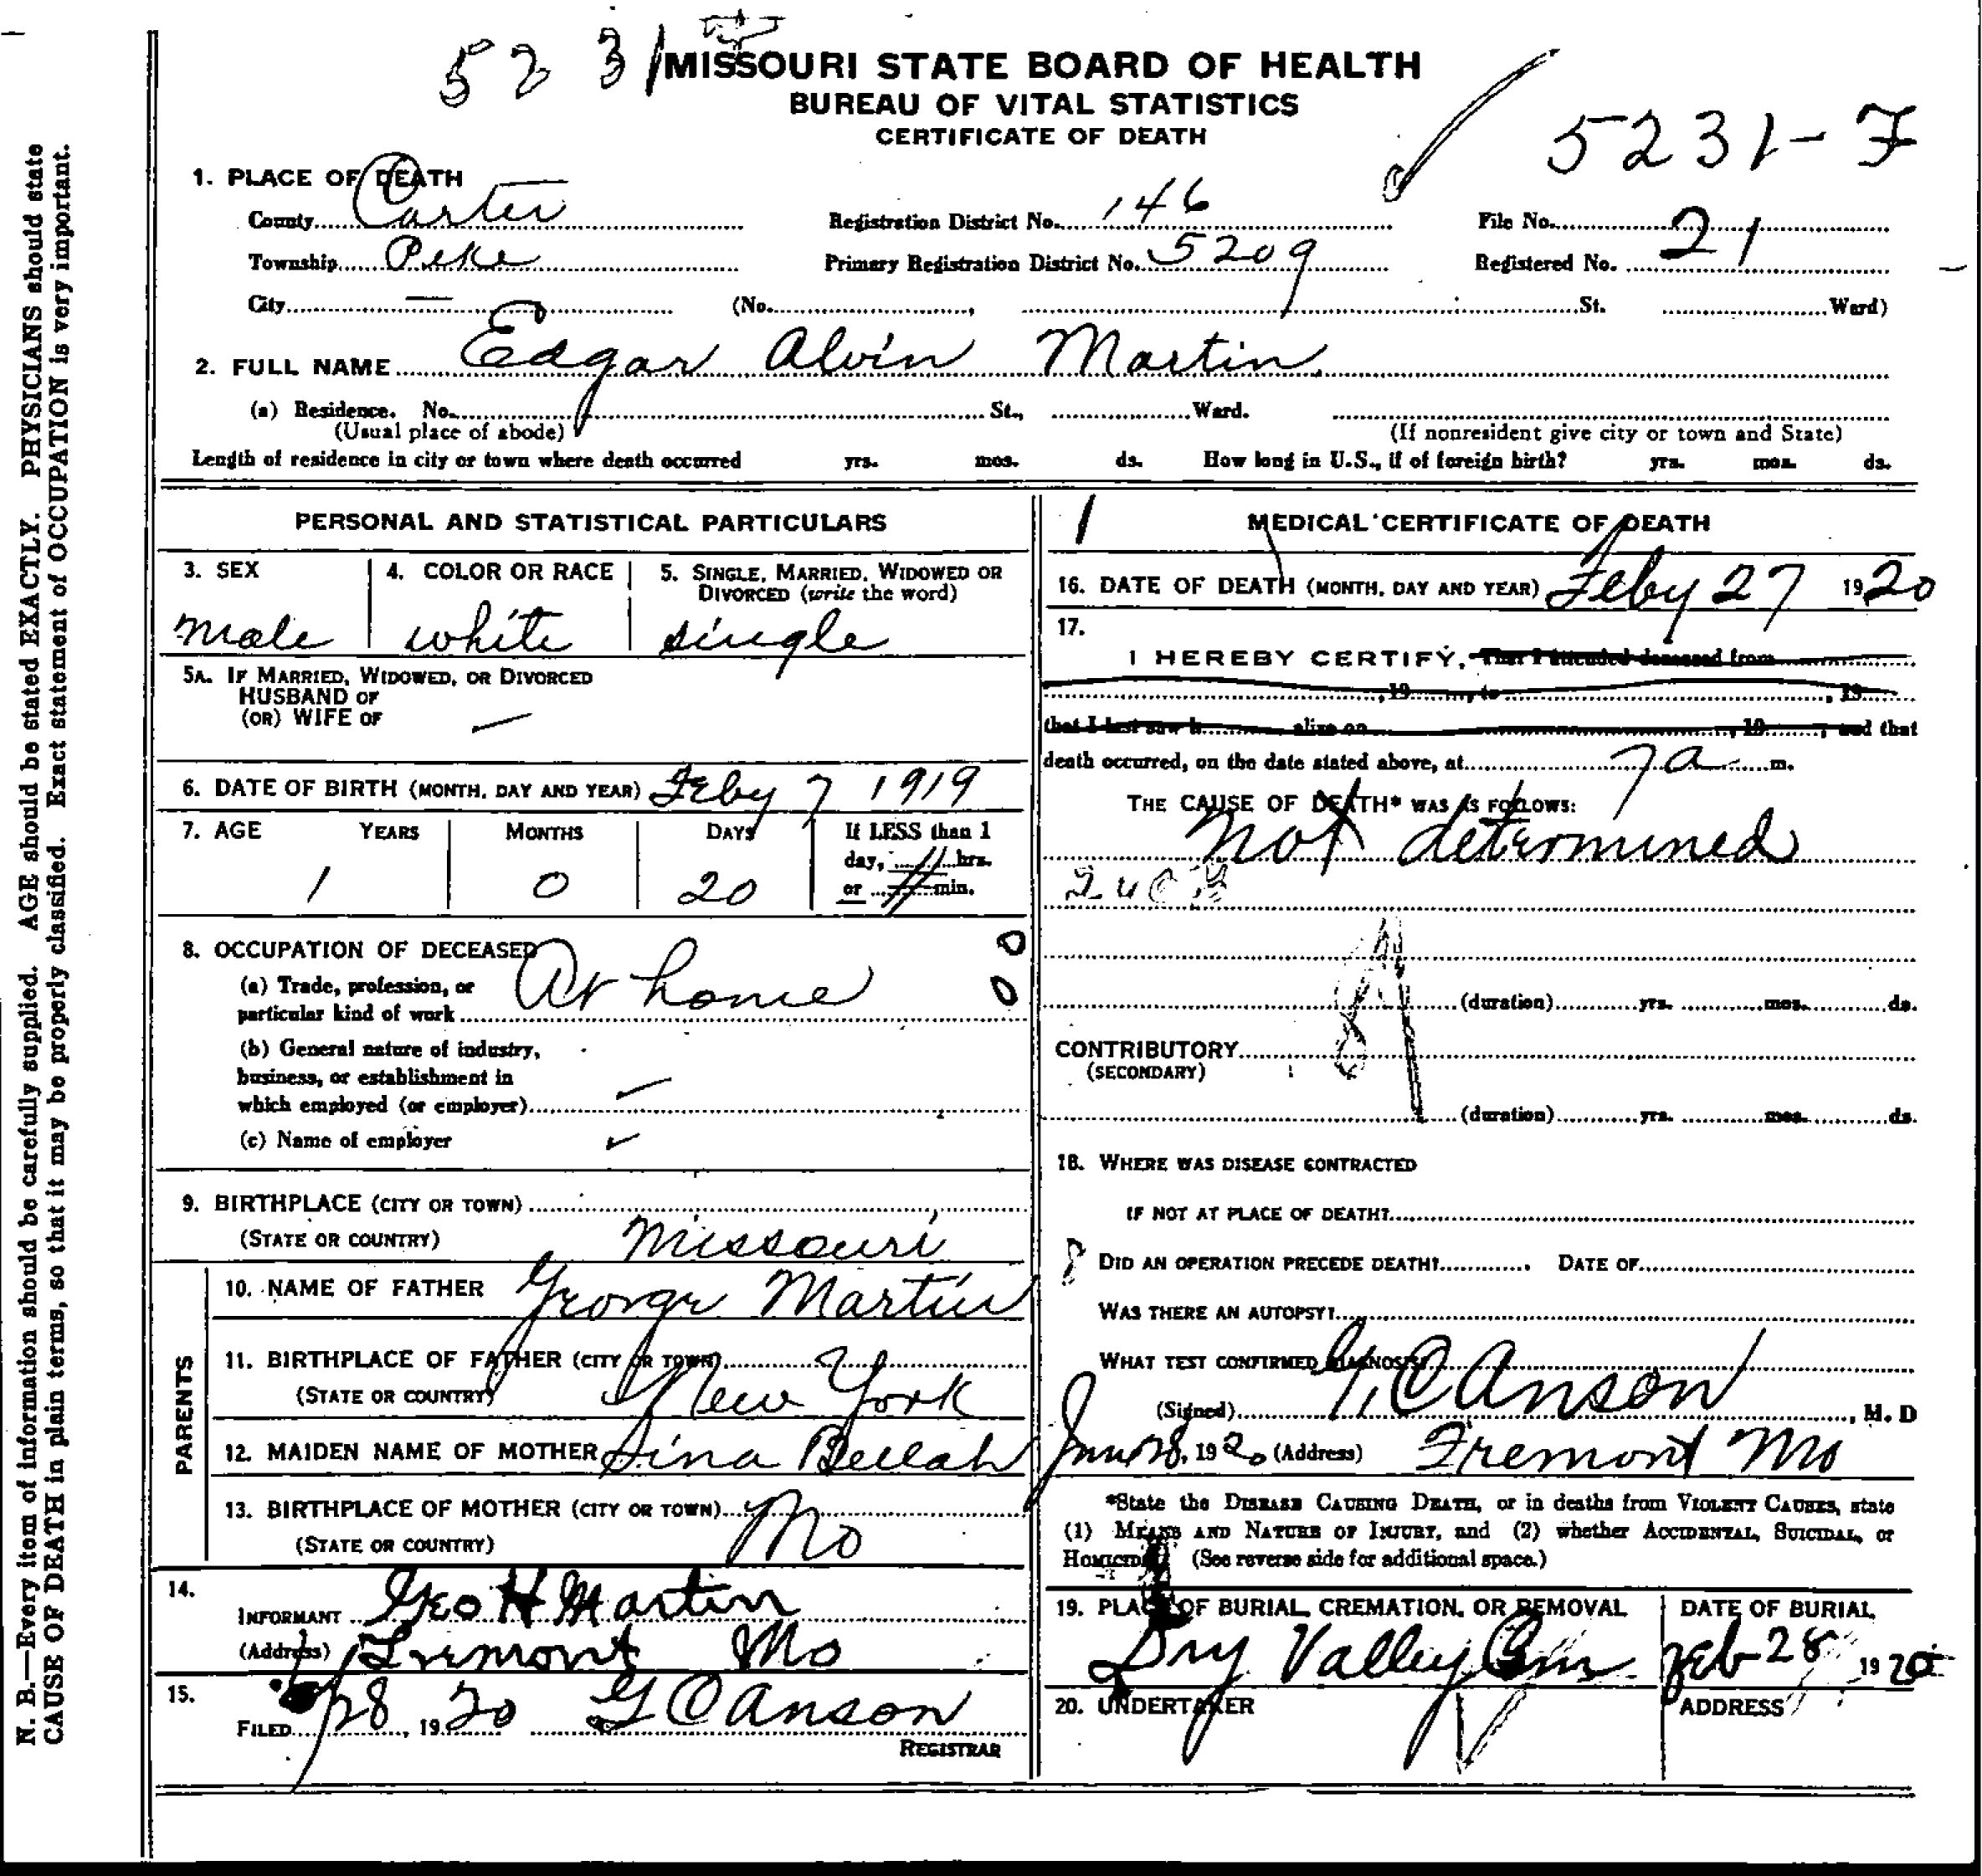 5231
MISSOURI STATE BOARD OF HEALTH
BUREAU OF VITAL STATISTICS
CERTIFICATE OF DEATH
5231-F
1. PLACE OF DEATH
County Carter Registration District No. 146 File No.
Township Pike Primary Registration District No. 5209 Registered No. 21
City — (No. , St. Ward)
2. FULL NAME Edgar Alvin Martin
(a) Residence. No. St., Ward.
(Usual place of abode) (If nonresident give city or town and State)
Length of residence in city or town where death occurred yrs. mos. ds. How long in U.S., if of foreign birth? yrs. mos. ds.
PERSONAL AND STATISTICAL PARTICULARS
3. SEX 4. COLOR OR RACE 5. SINGLE, MARRIED, WIDOWED OR
DIVORCED (write the word)
male white single
5A. IF MARRIED, WIDOWED, OR DIVORCED
HUSBAND OF
(OR) WIFE OF —
6. DATE OF BIRTH (MONTH, DAY AND YEAR) Feby 7 1919
7. AGE YEARS MONTHS DAYS If LESS than 1
day, hrs.
1 0 20 or min.
8. OCCUPATION OF DECEASED
(a) Trade, profession, or At home
particular kind of work
(b) General nature of industry,
business, or establishment in
which employed (or employer)
(c) Name of employer
9. BIRTHPLACE (CITY OR TOWN)
(STATE OR COUNTRY) Missouri
PARENTS
10. NAME OF FATHER George Martin
11. BIRTHPLACE OF FATHER (CITY OR TOWN)
(STATE OR COUNTRY) New York
12. MAIDEN NAME OF MOTHER Sina Bellah
13. BIRTHPLACE OF MOTHER (CITY OR TOWN)
(STATE OR COUNTRY) Mo
14.
INFORMANT Geo H Martin
(Address) Fremont Mo
15.
FILED 28, 1920 G C Anson
REGISTRAR
1 MEDICAL CERTIFICATE OF DEATH
16. DATE OF DEATH (MONTH, DAY AND YEAR) Feby 27 1920
17.
I HEREBY CERTIFY, That I attended deceased from
, 19 , to , 19
that I last saw h alive on , 19 , and that
death occurred, on the date stated above, at 7 a m.
THE CAUSE OF DEATH* WAS AS FOLLOWS:
not determined
(duration) yrs. mos. ds.
CONTRIBUTORY
(SECONDARY)
(duration) yrs. mos. ds.
18. WHERE WAS DISEASE CONTRACTED
IF NOT AT PLACE OF DEATH?
DID AN OPERATION PRECEDE DEATH? DATE OF
WAS THERE AN AUTOPSY?
WHAT TEST CONFIRMED DIAGNOSIS?
(Signed) G C Anson, M. D
28, 1920 (Address) Fremont Mo
*State the DISEASE CAUSING DEATH, or in deaths from VIOLENT CAUSES, state
(1) MEANS AND NATURE OF INJURY, and (2) whether ACCIDENTAL, SUICIDAL, or
HOMICIDAL (See reverse side for additional space.)
19. PLACE OF BURIAL, CREMATION, OR REMOVAL DATE OF BURIAL
Dry Valley Cem Feb 28 1920
20. UNDERTAKER ADDRESS
N. B.—Every item of information should be carefully supplied. AGE should be stated EXACTLY. PHYSICIANS should state
CAUSE OF DEATH in plain terms, so that it may be properly classified. Exact statement of OCCUPATION is very important.